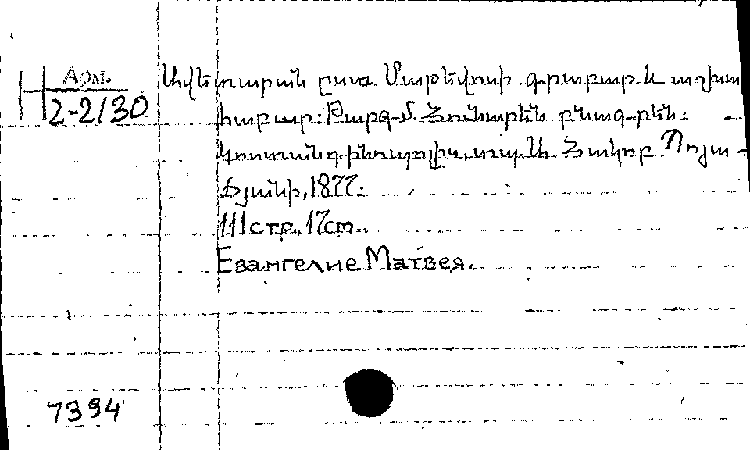 Арм.
2-2/30
Ավետարան ըստ Մաթեվոսի գրաբար և աշխա
հաբար: Թարգմ. Հունարեն բնագրեն:
Կոստանդինուպոլիս, տպ. և Հակոբ Պոյա-
ճյանի, 1877:
111стр. 17см.
Евангелие Матвея.
7394